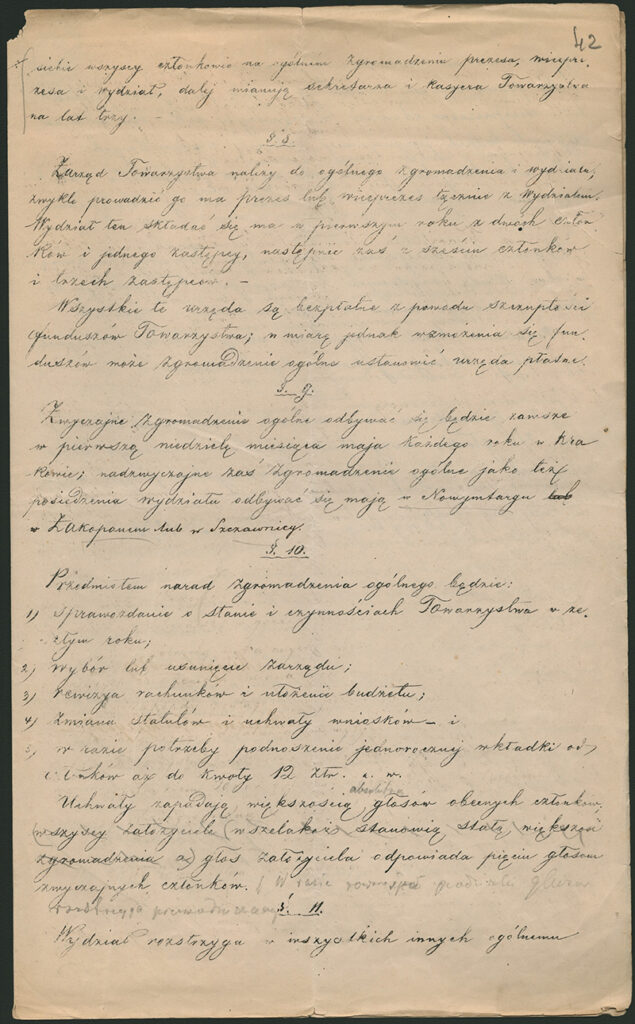 42
siebie wszyscy członkowie na ogólnem zgromadzeniu prezesa, wicepre-
zesa i wydział, dalej mianują sekretarza i kasyera Towarzystwa
na lat trzy. —
§. 8.
Zarząd Towarzystwa należy do ogólnego zgromadzenia i wydziału,
zwykle prowadzić go ma prezes lub wiceprezes łącznie z wydziałem.
Wydział ten składać się ma w pierwszym roku z dwóch człon-
ków i jednego zastępcy, następnie zaś z sześciu członków
i trzech zastępców. —
Wszystkie te urzęda są bezpłatne z powodu szczupłości
funduszów Towarzystwa; w miarę jednak wzmożenia się fun-
duszów może zgromadzenie ogólne ustanowić urzęda płatne.
§. 9.
Zwyczajne zgromadzenie ogólne odbywać się będzie zawsze
w pierwszą niedzielę miesiąca maja każdego roku w Kra-
kowie; nadzwyczajne zaś zgromadzenie ogólne jako też
posiedzenia wydziału odbywać się mają w Nowymtargu lub
w Zakopanem lub w Szczawnicy.
§. 10.
Przedmiotem narad zgromadzenia ogólnego będzie:
1) sprawozdanie o stanie i czynnościach Towarzystwa w ze-
szłym roku;
2) wybór lub usunięcie zarządu;
3) rewizya rachunków i ułożenie budżetu;
4) zmiana statutów i uchwały wniosków — i
5) w razie potrzeby podnoszenie jednorocznej wkładki od
członków aż do kwoty 12 złr. a. w.
absolutną
Uchwały zapadają większością głosów obecnych członków
(wszyscy założyciele (wszelakoż stanowią stałą większość
zgromadzenia a) głos założyciela odpowiada pięciu głosom
zwyczajnych członków. W razie głosów
rozstrzyga przewodniczący
§. 11.
Wydział rozstrzyga w wszystkich innych ogólnemu